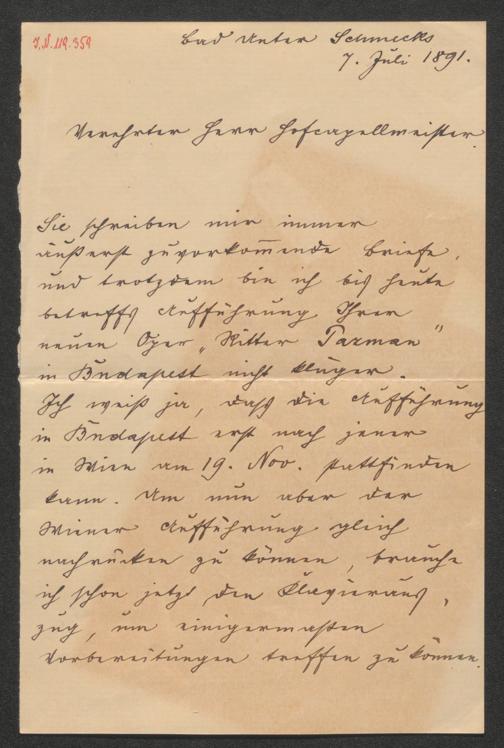 I.N. 119.359
Bad Unter Schmecks
7. Juli 1891.
Verehrter Herr Hofcapellmeister.
Sie schreiben mir immer
äußerst zuvorkom̄ende Briefe,
und trotzdem bin ich bis heute
betreffs Aufführung Ihrer
neuen Oper „Ritter Pazman"
in Budapest nicht klüger.
Ich weiß ja, daß die Aufführung
in Budapest erst nach jener
in Wien am 19. Nov. stattfinden
kann. Um nun aber der
Wiener Aufführung gleich
nachrücken zu können, brauche
ich schon jetzt den Klavieraus,
zug, um einigermaßen
Vorbereitungen treffen zu können.